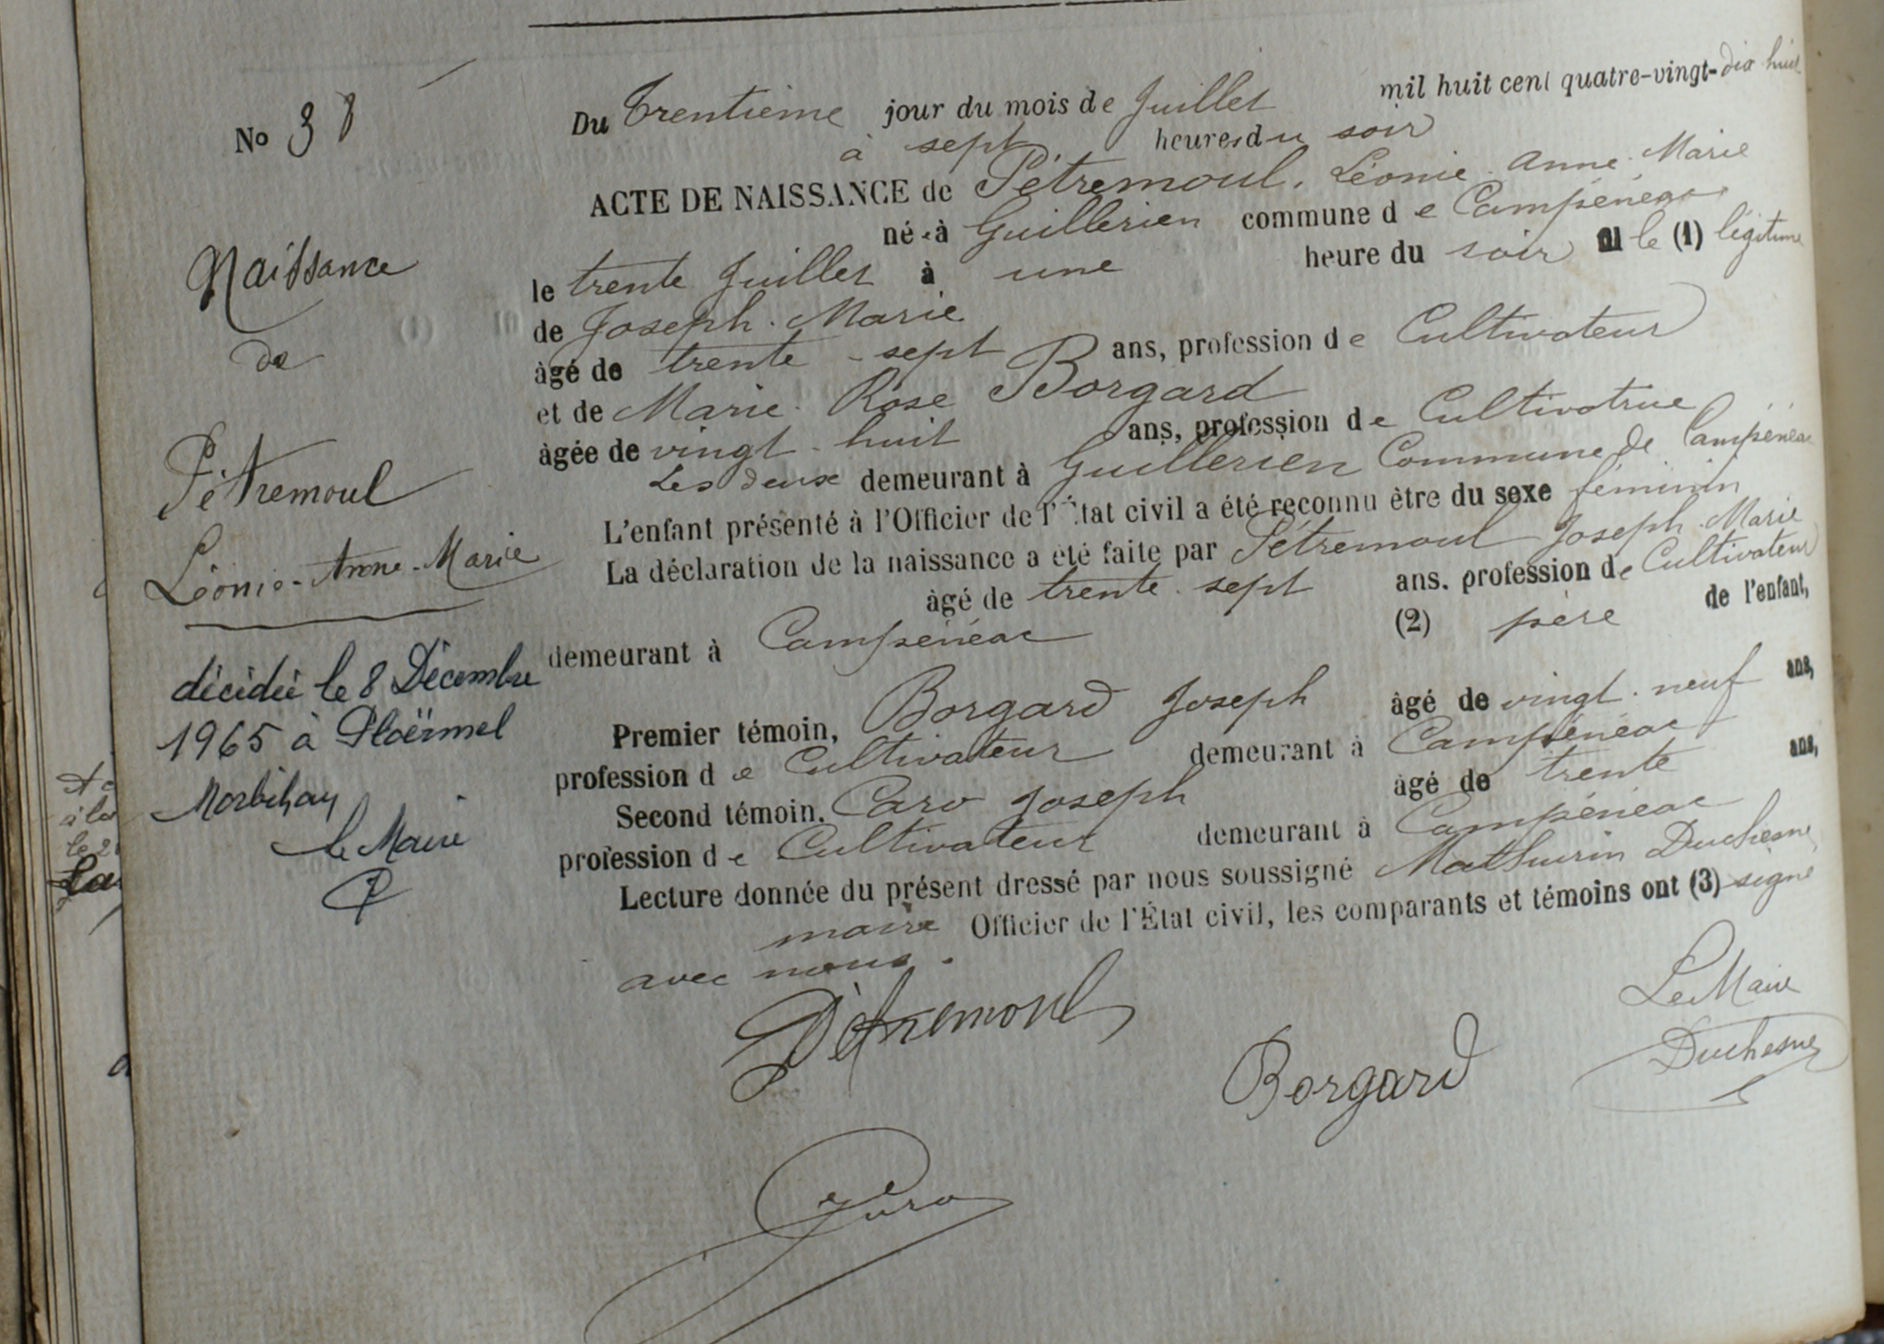 No 38
Naissance
de
Pétremoul
Léonie-Anne-Marie
décédée le 8 Décembre
1965 à Ploërmel
Morbihan
Le Maire
Du trentième jour du mois de Juillet mil huit cent quatre-vingt-dix huit
à sept heures du soir
ACTE DE NAISSANCE de Pétremoul, Léonie Anne Marie
née à Guillerien commune de Campénéac
le trente Juillet à une heure du soir fille (1) légitime
de Joseph Marie
âgé de trente-sept ans, profession de Cultivateur
et de Marie Rose Borgard
âgée de vingt-huit ans, profession de Cultivatrice
Les deux demeurant à Guillerien Commune de Campénéac
L'enfant présenté à l'Officier de l'État civil a été reconnu être du sexe féminin
La déclaration de la naissance a été faite par Pétremoul Joseph Marie
âgé de trente-sept ans. profession de Cultivateur
demeurant à Campénéac (2) père de l'enfant,
Premier témoin, Borgard Joseph âgé de vingt-neuf ans,
profession de Cultivateur demeurant à Campénéac
Second témoin, Caro Joseph âgé de trente ans,
profession de Cultivateur demeurant à Campénéac
Lecture donnée du présent dressé par nous soussigné Mathurin Duchesne
maire Officier de l'État civil, les comparants et témoins ont (3) signé
avec nous.
Pétremoul
Borgard
Le Maire
Duchesne
Caro